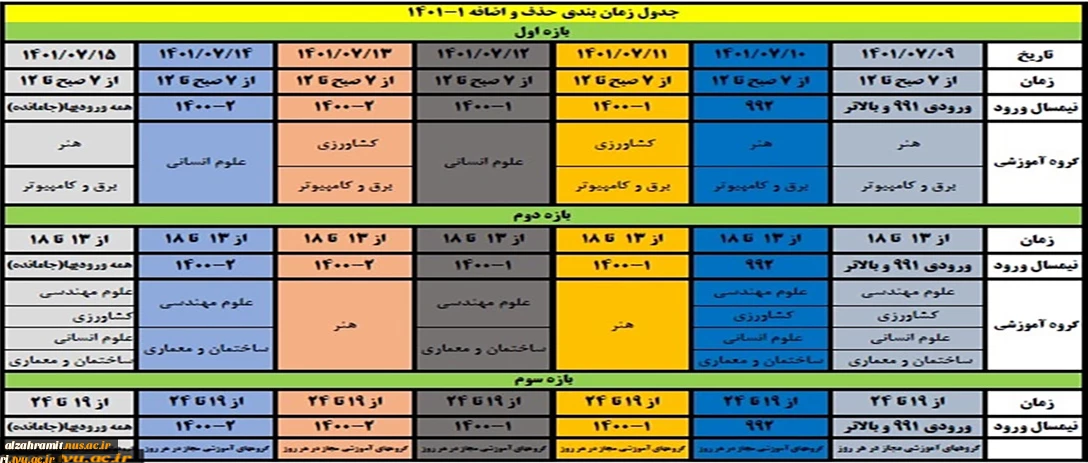 جدول زمان بندی حذف و اضافه ۱-۱۴۰۱
بازه اول
تاریخ ۱۴۰۱/۰۷/۰۹ ۱۴۰۱/۰۷/۱۰ ۱۴۰۱/۰۷/۱۱ ۱۴۰۱/۰۷/۱۲ ۱۴۰۱/۰۷/۱۳ ۱۴۰۱/۰۷/۱۴ ۱۴۰۱/۰۷/۱۵
زمان از ۷ صبح تا ۱۲ از ۷ صبح تا ۱۲ از ۷ صبح تا ۱۲ از ۷ صبح تا ۱۲ از ۷ صبح تا ۱۲ از ۷ صبح تا ۱۲ از ۷ صبح تا ۱۲
نیمسال ورود ورودی ۹۹۱ و بالاتر ۹۹۲ ۱۴۰۰-۱ ۱۴۰۰-۱ ۱۴۰۰-۲ ۱۴۰۰-۲ همه ورودیها(جامانده)
گروه آموزشی هنر هنر کشاورزی علوم انسانی کشاورزی علوم انسانی هنر
برق و کامپیوتر برق و کامپیوتر برق و کامپیوتر برق و کامپیوتر برق و کامپیوتر
بازه دوم
زمان از ۱۳ تا ۱۸ از ۱۳ تا ۱۸ از ۱۳ تا ۱۸ از ۱۳ تا ۱۸ از ۱۳ تا ۱۸ از ۱۳ تا ۱۸ از ۱۳ تا ۱۸
نیمسال ورود ورودی ۹۹۱ و بالاتر ۹۹۲ ۱۴۰۰-۱ ۱۴۰۰-۱ ۱۴۰۰-۲ ۱۴۰۰-۲ همه ورودیها(جامانده)
گروه آموزشی علوم مهندسی علوم مهندسی هنر علوم مهندسی هنر علوم مهندسی علوم مهندسی
کشاورزی کشاورزی کشاورزی
علوم انسانی علوم انسانی ساختمان و معماری ساختمان و معماری علوم انسانی
ساختمان و معماری ساختمان و معماری ساختمان و معماری
بازه سوم
زمان از ۱۹ تا ۲۴ از ۱۹ تا ۲۴ از ۱۹ تا ۲۴ از ۱۹ تا ۲۴ از ۱۹ تا ۲۴ از ۱۹ تا ۲۴ از ۱۹ تا ۲۴
نیمسال ورود ورودی ۹۹۱ و بالاتر ۹۹۲ ۱۴۰۰-۱ ۱۴۰۰-۱ ۱۴۰۰-۲ ۱۴۰۰-۲
گروههای آموزشی مجاز در هر روز گروههای آموزشی مجاز در هر روز گروههای آموزشی مجاز در هر روز گروههای آموزشی مجاز در هر روز گروههای آموزشی مجاز در هر روز گروههای آموزشی مجاز در هر روز
alzahramit.nus.ac.ir
ri.tvu.ac.ir vu.ac.ir